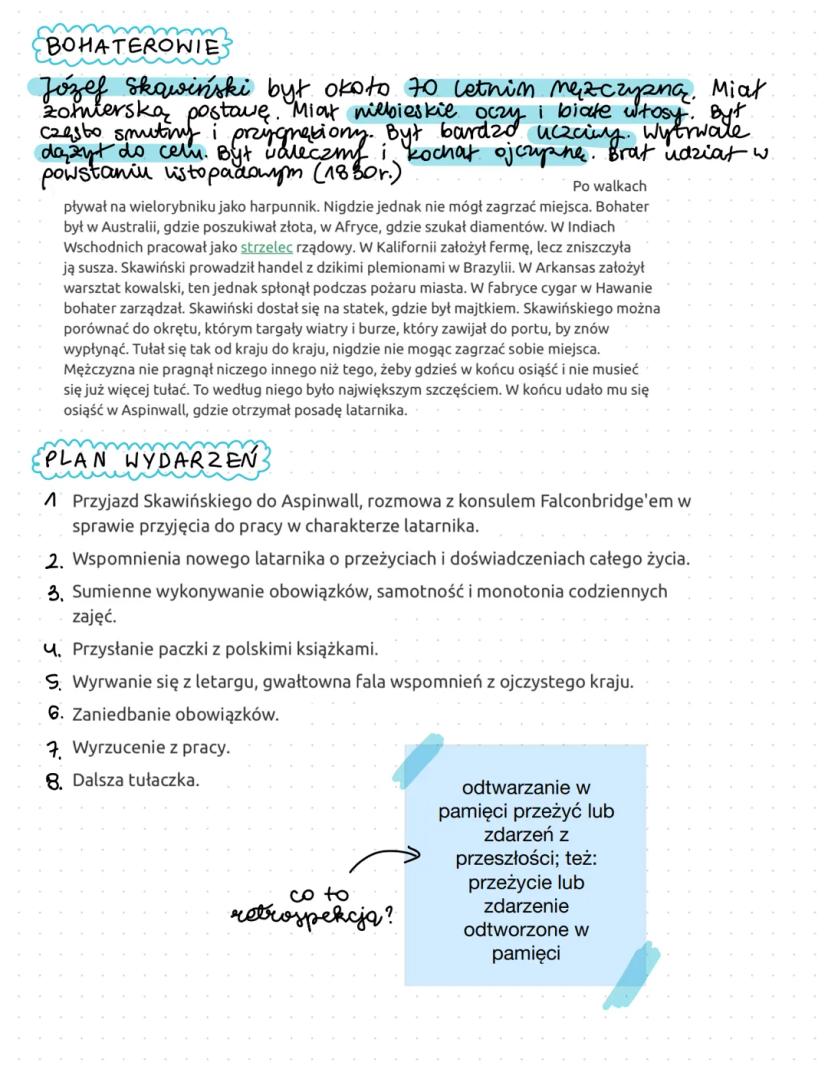 BOHATEROWIE
Józef Skawiński był około 70 letnim mężczyzną. Miał
żołnierską postawę. Miał niebieskie oczy i białe włosy. Był
często smutny i przygnębiony. Był bardzo uczciwy. Wytrwale
dążył do celu. Był waleczny i kochał ojczyznę. Brał udział w
powstaniu listopadowym (1830r.)
Po walkach
pływał na wielorybniku jako harpunnik. Nigdzie jednak nie mógł zagrzać miejsca. Bohater
był w Australii, gdzie poszukiwał złota, w Afryce, gdzie szukał diamentów. W Indiach
Wschodnich pracował jako strzelec rządowy. W Kalifornii założył fermę, lecz zniszczyła
ją susza. Skawiński prowadził handel z dzikimi plemionami w Brazylii. W Arkansas założył
warsztat kowalski, ten jednak spłonął podczas pożaru miasta. W fabryce cygar w Hawanie
bohater zarządzał. Skawiński dostał się na statek, gdzie był majtkiem. Skawińskiego można
porównać do okrętu, którym targały wiatry i burze, który zawijał do portu, by znów
wypłynąć. Tułał się tak od kraju do kraju, nigdzie nie mogąc zagrzać sobie miejsca.
Mężczyzna nie pragnął niczego innego niż tego, żeby gdzieś w końcu osiąść i nie musieć
się już więcej tułać. To według niego było największym szczęściem. W końcu udało mu się
osiąść w Aspinwall, gdzie otrzymał posadę latarnika.
PLAN WYDARZEŃ
1 Przyjazd Skawińskiego do Aspinwall, rozmowa z konsulem Falconbridge'em w
sprawie przyjęcia do pracy w charakterze latarnika.
2. Wspomnienia nowego latarnika o przeżyciach i doświadczeniach całego życia.
3. Sumienne wykonywanie obowiązków, samotność i monotonia codziennych
zajęć.
4. Przysłanie paczki z polskimi książkami.
5. Wyrwanie się z letargu, gwałtowna fala wspomnień z ojczystego kraju.
6. Zaniedbanie obowiązków.
7. Wyrzucenie z pracy.
8. Dalsza tułaczka.
co to
retrospekcja?
odtwarzanie w
pamięci przeżyć lub
zdarzeń z
przeszłości; też:
przeżycie lub
zdarzenie
odtworzone w
pamięci